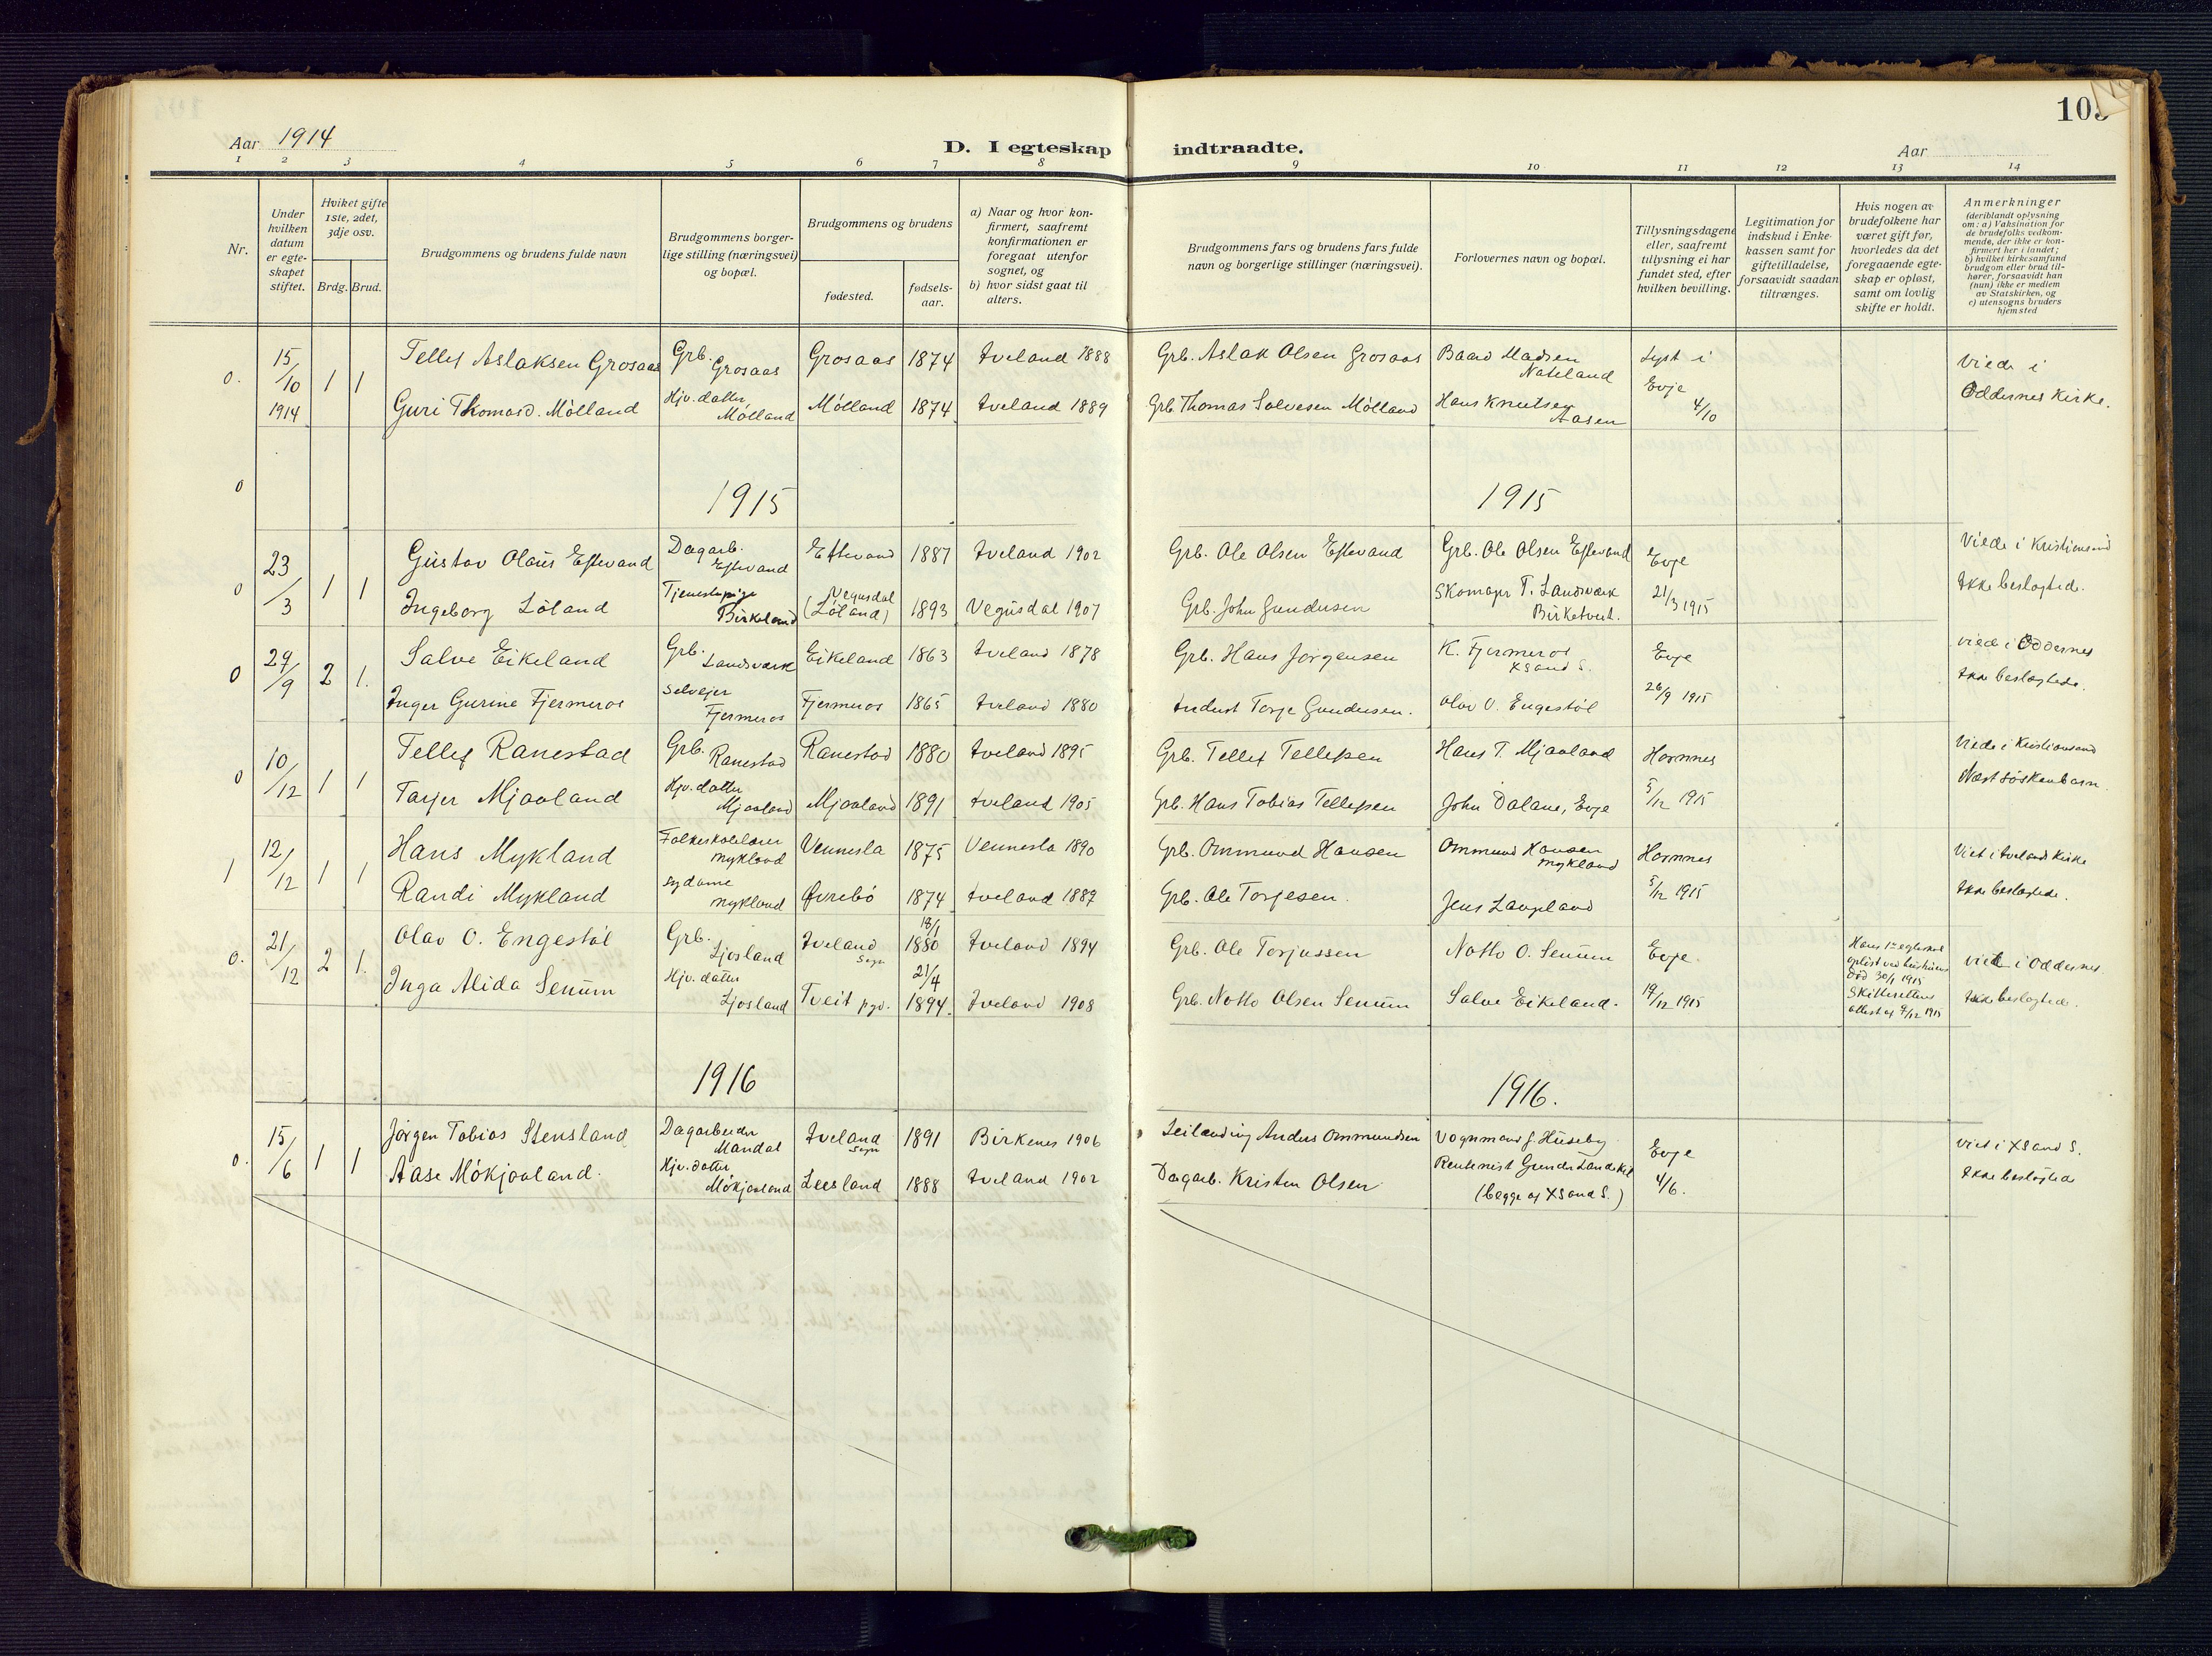 Aar 1914
D. I egteskap indtraadte.
Aar
1 2 3 4 5 6 7 8 9 10 11 12 13 14
Nr.
Under hvilken datum er egteskapet stiftet.
Hviket gifte 1ste, 2det, 3dje osv.
Brdg. Brud.
Brudgommens og brudens fulde navn
Brudgommens borgerlige stilling (næringsvei) og bopæl.
Brudgommens og brudens
fødested.
fødselsaar.
a) Naar og hvor konfirmert, saafremt konfirmationen er foregaat utenfor sognet, og
b) hvor sidst gaat til alters.
Brudgommens fars og brudens fars fulde navn og borgerlige stillinger (næringsvei).
Forlovernes navn og bopæl.
Tillysningsdagene eller, saafremt tillysning ei har fundet sted, efter hvilken bevilling.
Legitimation for indskud i Enkekassen samt for giftetilladelse, forsaavidt saadan tiltrænges.
Hvis nogen av brudefolkene har været gift før, hvorledes da det foregaaende egteskap er opløst, samt om lovlig skifte er holdt.
Anmerkninger (deriblandt oplysning om: a) Vaksination for de brudefolks vedkommende, der ikke er konfirmert her i landet; b) hvilket kirkesamfund brudgom eller brud tilhører, forsaavidt han (nun) ikke er medlem av Statskirken, og c) utensogns bruders hjemsted
0. 15/10 1914 1 1
Tellef Aslaksen Grosaas Grb. Grosaas Grosaas 1874 Iveland 1888 Grb. Aslak Olsen Grosaas Baard Madsen Nateland Lyst i Evje 4/10 Viede i Oddernes Kirke.
Guri Thomasd. Mölland Hjv. datter Mölland Mölland 1874 Iveland 1889 Grb. Thomas Salvesen Mölland Hans Knutsen Aasen
0 1915 1915
0 23/3 1 1
Gustav Olaus Eftevand Dagarb. Eftevand Eftevand 1887 Iveland 1902 Grb. Ole Olsen Eftevand Grb. Ole Olsen Eftevand Evje 21/3 1915 Viede i Kristiansand
Ingeborg Löland Tjenestepige Birkeland Vegusdal (Löland) 1893 Vegusdal 1907 Grb. John Gundersen Skomagr T. Landsværk Birketveit. Ikke beslegtede.
0 29/9 2 1.
Salve Eikeland Grb. Landsværk Eikeland 1863 Iveland 1878 Grb. Hans Jørgensen K. Fjermeros XSand S. Evje 26/9 1915 viede i Oddernes
Inger Gurine Fjermeros Selvejer Fjermeros Fjermeros 1865 Iveland 1880 Indust Torje Gundersen. Olav O. Engestöl Ikke beslegtede.
0 10/12 1 1
Tellef Ranestad Grb. Ranestad Ranestad 1880 Iveland 1895 Grb. Tellef Tellefsen Hans T. Mjaaland Hornnes 5/12 1915 Viede i Kristiansand
Tarjer Mjaaland Hjv. datter Mjaaland Mjaaland 1891 Iveland 1905 Grb. Hans Tobias Tellefsen John Dalane, Evje Næstsöskenbarn.
1 12/12 1 1
Hans Mykland Folkeskolelærer Mykland Vennesla 1875 Vennesla 1890 Grb. Ommund Hansen Ommund Hansen Mykland Hornnes 5/12 1915 Viet i Iveland Kirke
Randi Mykland Sydame Mykland Øvrebö 1874 Iveland 1889 Grb. Ole Torjesen. Jens Laupland Ikke beslegtede.
0. 21/12 2 1.
Olav O. Engestöl Grb. Ljosland Iveland Sogn 18/1 1880 Iveland 1894 Grb. Ole Torjussen Notto O. Senum Evje. 19/12 1915 Hans 1ste egteskab oplöst ved hustruens död 30/1 1915 Skifterettens attest af 9/12 1915 viet i Oddernes
Inga Alida Senum Hjv. datter Ljosland Tveit pgd. 21/4 1894. Iveland 1908 Grb. Notto Olsen Senum Salve Eikeland. Ikke beslegtede.
1916 1916.
0. 15/6 1 1
Jörgen Tobias Stensland Dagarbeider Mandal Iveland Sogn 1891 Birkenes 1906 Leilending Anders Ommundsen Vognmand J. Huseby Evje 4/6. Viet i XSand S.
Aase Mökjaaland. Hjv. datter Mökjaaland Leesland 1888 Iveland 1902 Dagarb. Kristen Olsen Rentenist Gunder (begge af XSand S.) Ikke beslegtede